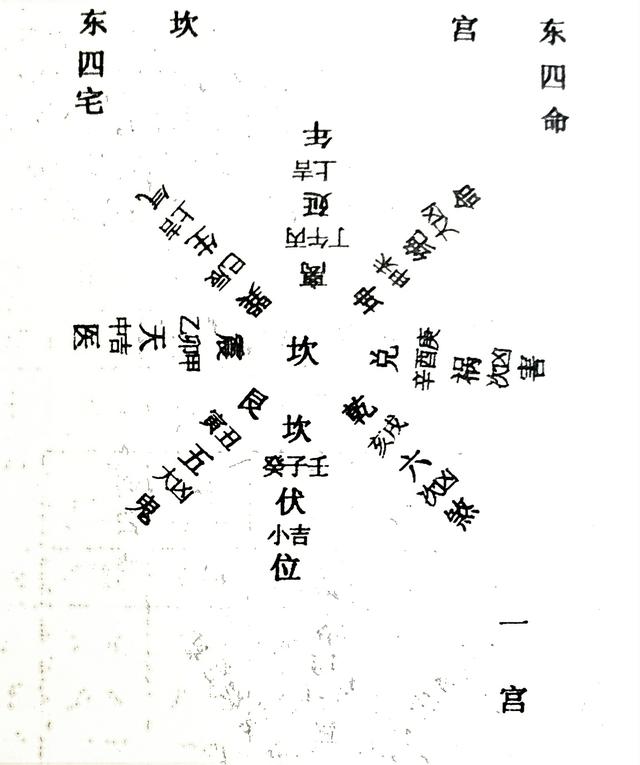 东四宅
坎
宫
东四命
离
丁午丙
延
上吉
年
坤
申未
绝
大凶
命
兑
辛酉庚
祸
次凶
害
乾
亥戌
六
次凶
煞
坎
坎
癸子壬
伏
小吉
位
艮
寅丑
五
大凶
鬼
震
乙卯甲
天
中吉
医
巽
巳辰
生
上吉
气
一宫